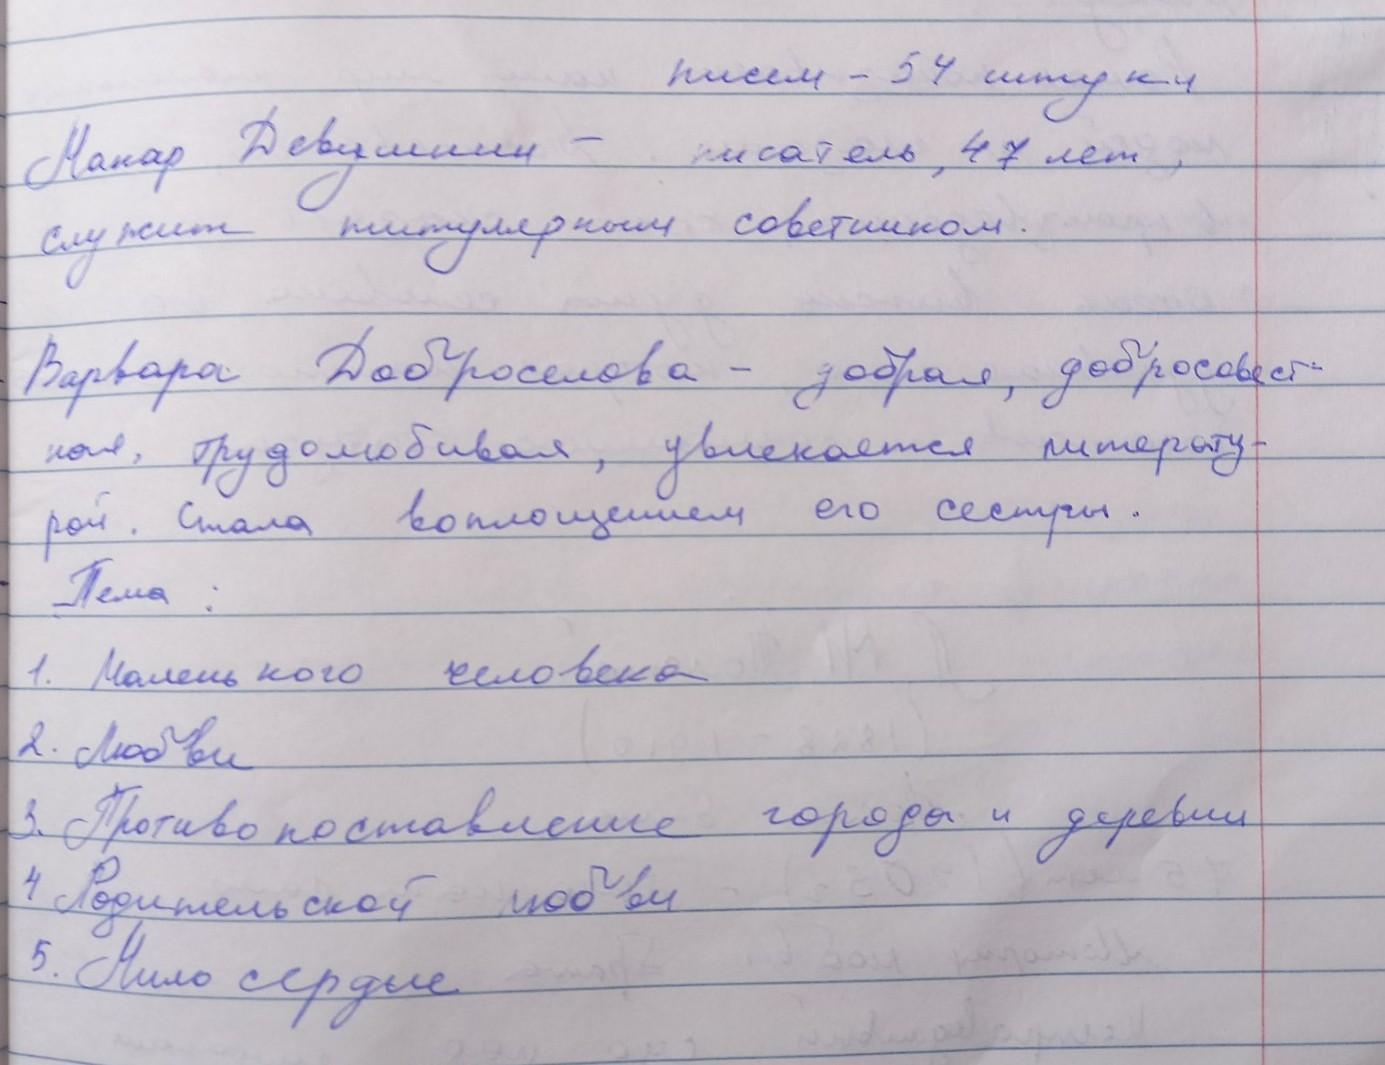 писем - 54 штуки
Макар Девушкин - писатель, 47 лет,
служит титулярным советником.
Варвара Доброселова - добрая, добросовест-
ная, трудолюбивая, увлекается литерату-
рой. Стала воплощением его сестры.
Тема :
1. Маленького человека
2. Любви
3. Противопоставление города и деревни
4 Родительской любви
5. Милосердие